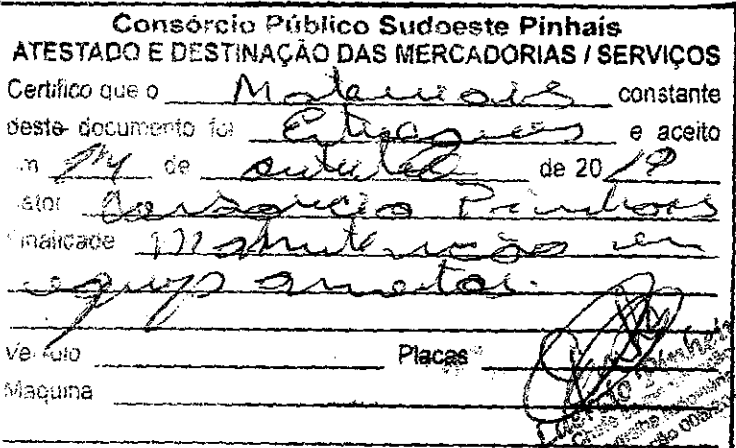 Consórcio Público Sudoeste Pinhais
ATESTADO E DESTINAÇÃO DAS MERCADORIAS / SERVIÇOS
Certifico que o Materiais constante
deste documento foi Entregues e aceito
em 14 de outubro de 2019
Consórcio Pinhais
Finalidade Manutenção em
equipamentos.
Veículo Placas
Maquina